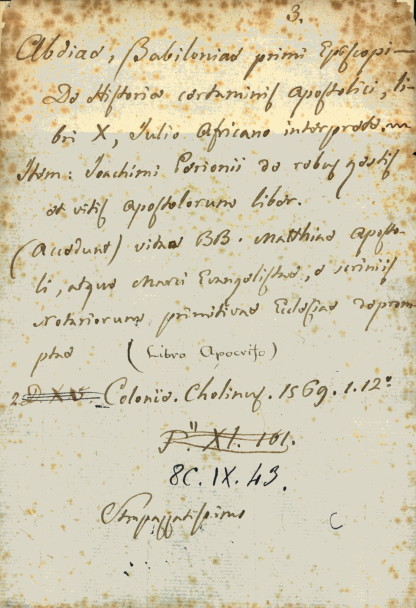 3.
Abdiae, Babiloniae primi Episcopi
De Historia certaminis Apostolici, li-
bri X, Julio Africano interprete,
Item: Joachimi Perionii de rebus gestis
et vitis Apostolorum liber.
(Accedunt) vitae BB. Matthiae Aposto-
li, atque Marci Evangelistae, e scriniis
Notariorum primitivae Ecclesiae deprom-
ptae (Libro Apocrifo)
2. D XV. Coloniae. Cholinus. 1569. 1. 12°
P." XI. 101.
8C. IX. 43.
Strapazzatissimo
C